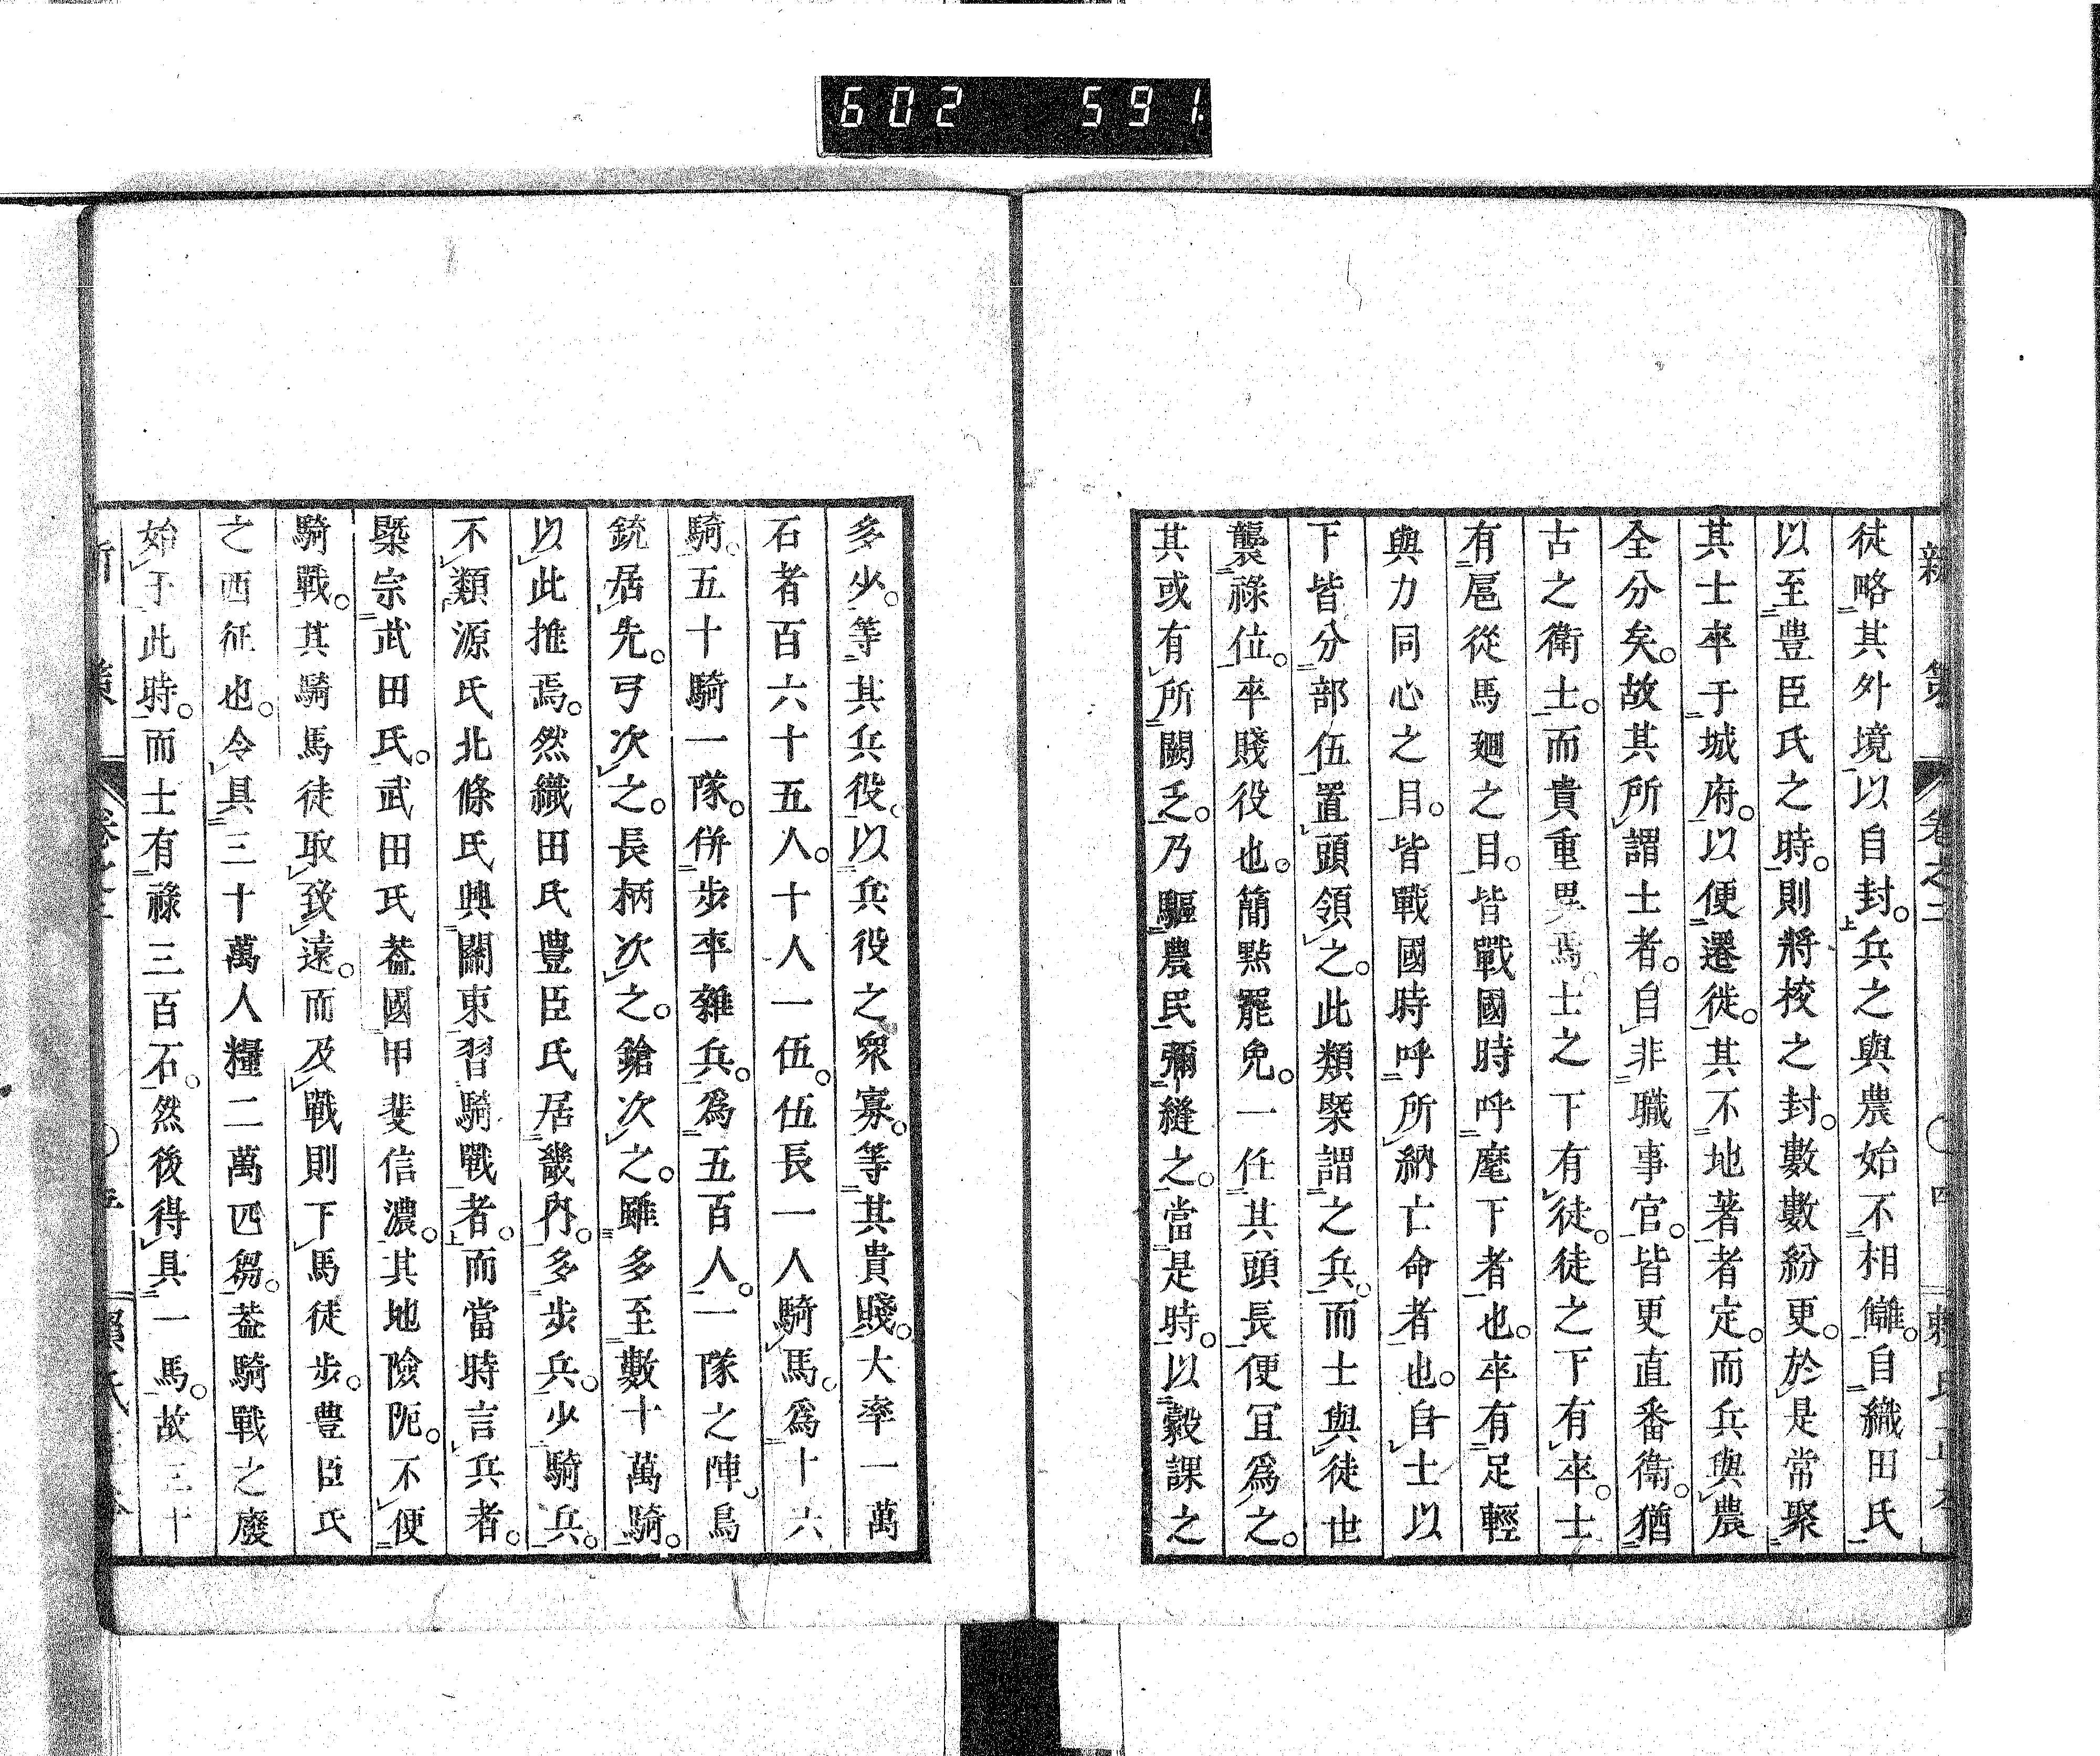 602 591.
新策 卷之二 四 賴氏正本
徒略其外境以自封。兵之與農始不相雔。自織田氏
以至豊臣氏之時。則將校之封。數數紛更。於是常聚
其士卒于城府。以便遷徙。其不地著者定。而兵與農
全分矣。故其所謂士者。自非職事官。皆更直番衛。猶
古之衛士。而貴重異焉。士之下有徒。徒之下有卒。士
有扈從馬廻之目。皆戰國時呼麾下者也。卒有足輕
與力同心之目。皆戰國時呼所納亡命者也。自士以
下皆分部伍置頭領之。此類槩謂之兵。而士與徒世
襲祿位。卒賤役也。簡點罷免。一任其頭長便宜爲之。
其或有所闕乏。乃驅農民彌縫之。當是時。以穀課之
多少。等其兵役。以兵役之衆寡。等其貴賤。大率一萬
石者百六十五人。十人一伍。伍長一人騎馬。爲十六
騎。五十騎一隊。併步卒雜兵。爲五百人。一隊之陣。鳥
銃居先。弓次之。長柄次之。鎗次之。雖多至數十萬騎。
以此推焉。然織田氏豊臣氏居畿內。多步兵。少騎兵。
不類源氏北條氏興關東習騎戰者。而當時言兵者。
槩宗武田氏。武田氏葢國甲斐信濃。其地險阨。不便
騎戰。其騎馬徒取致遠。而及戰則下馬徒步。豊臣氏
之西征也。令具三十萬人糧二萬匹芻。葢騎戰之廢
始于此時。而士有祿三百石。然後得具一馬。故三十
新策 卷之二 五 賴氏